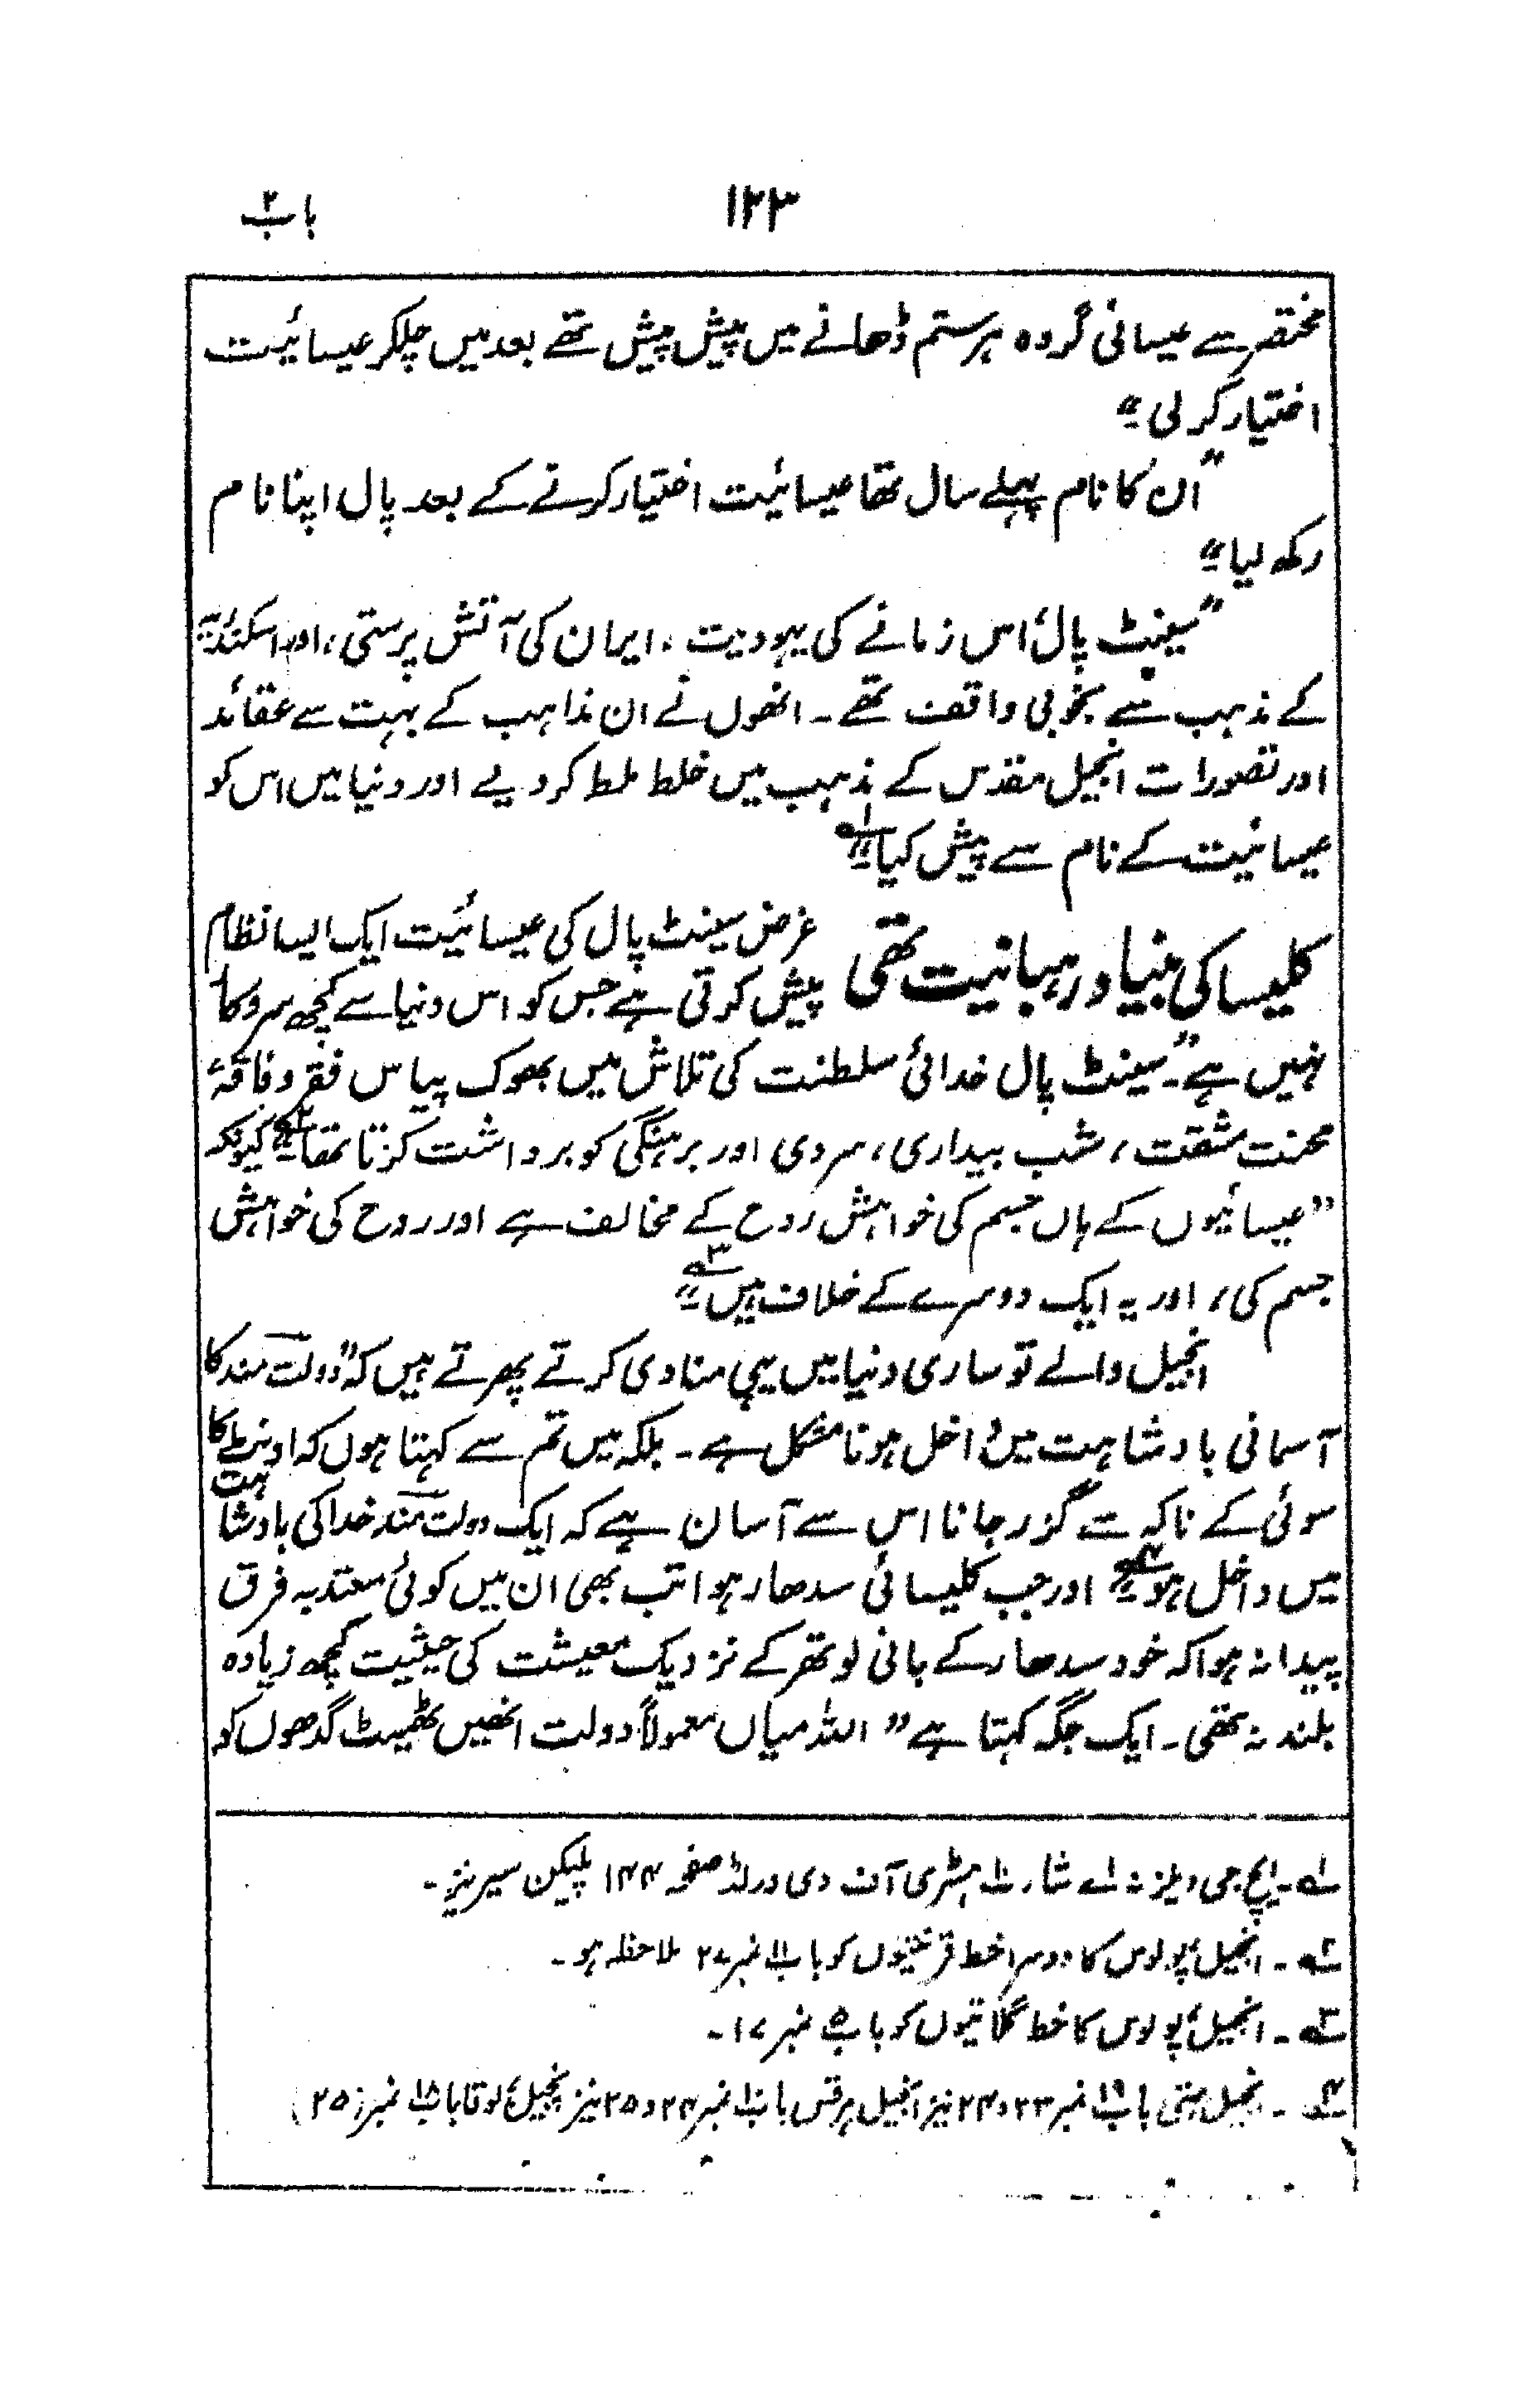 ۱۲۳
باب ۲
مختصر سے عیسائی گروہ پر ستم ڈھانے میں پیش پیش تھے بعد میں چلکر عیسائیت
اختیار کر لی۔"
"ان کا نام پہلے سال تھا عیسائیت اختیار کرنے کے بعد پال اپنا نام
رکھ لیا۔"
"سینٹ پال، اس زمانے کی یہودیت، ایران کی آتش پرستی، اور اسکندریہ
کے مذہب سے بخوبی واقف تھے۔ انھوں نے ان مذاہب کے بہت سے عقائد
اور تصورات انجیل مقدس کے مذہب میں خلط ملط کر دیے اور دنیا میں اس کو
عیسائیت کے نام سے پیش کیا۔"۱
کلیسا کی بنیاد رہبانیت تھی
غرض سینٹ پال کی عیسائیت ایک ایسا نظام
پیش کرتی ہے جس کو اس دنیا سے کچھ سروکار
نہیں ہے۔ "سینٹ پال خدائی سلطنت کی تلاش میں بھوک پیاس فقر و فاقہ
محنت مشقت، شب بیداری، سردی اور برہنگی کو برداشت کرتا تھا"۲ کیونکہ
"عیسائیوں کے ہاں جسم کی خواہش روح کے مخالف ہے اور روح کی خواہش
جسم کی، اور یہ ایک دوسرے کے خلاف ہیں۔"۳
انجیل والے تو ساری دنیا میں یہی منادی کرتے پھرتے ہیں کہ "دولت مند کا
آسمانی بادشاہت میں داخل ہونا مشکل ہے۔ بلکہ میں تم سے کہتا ہوں کہ اونٹ کا
سوئی کے ناکہ سے گزر جانا اس سے آسان ہے کہ ایک دولت مند خدا کی بادشاہت
میں داخل ہو۔"۴ اور جب کلیسائی سدھار ہوا تب بھی ان میں کوئی معتدبہ فرق
پیدا نہ ہوا کہ خود سدھار کے بانی لوتھر کے نزدیک معیشت کی حیثیت کچھ زیادہ
بلند نہ تھی۔ ایک جگہ کہتا ہے "اللہ میاں معمولاً دولت انھیں ٹھیٹ گدھوں کو
۱۔ ایچ جی ویلز: اے شارٹ ہسٹری آف دی ورلڈ صفحہ ۱۴۴ پلیکن سیریز۔
۲۔ انجیل، پولوس کا دوسرا خط قرنتیوں کو باب ۱۱ نمبر ۲۷ ملاحظہ ہو۔
۳۔ انجیل، پولوس کا خط گلاتیوں کو باب ۵ نمبر ۱۷۔
۴۔ انجیل متی باب ۱۹ نمبر ۲۳ و ۲۴ نیز انجیل مرقس باب ۱۰ نمبر ۲۴ و ۲۵ نیز انجیل، لوقا باب ۱۸ نمبر ۲۵)